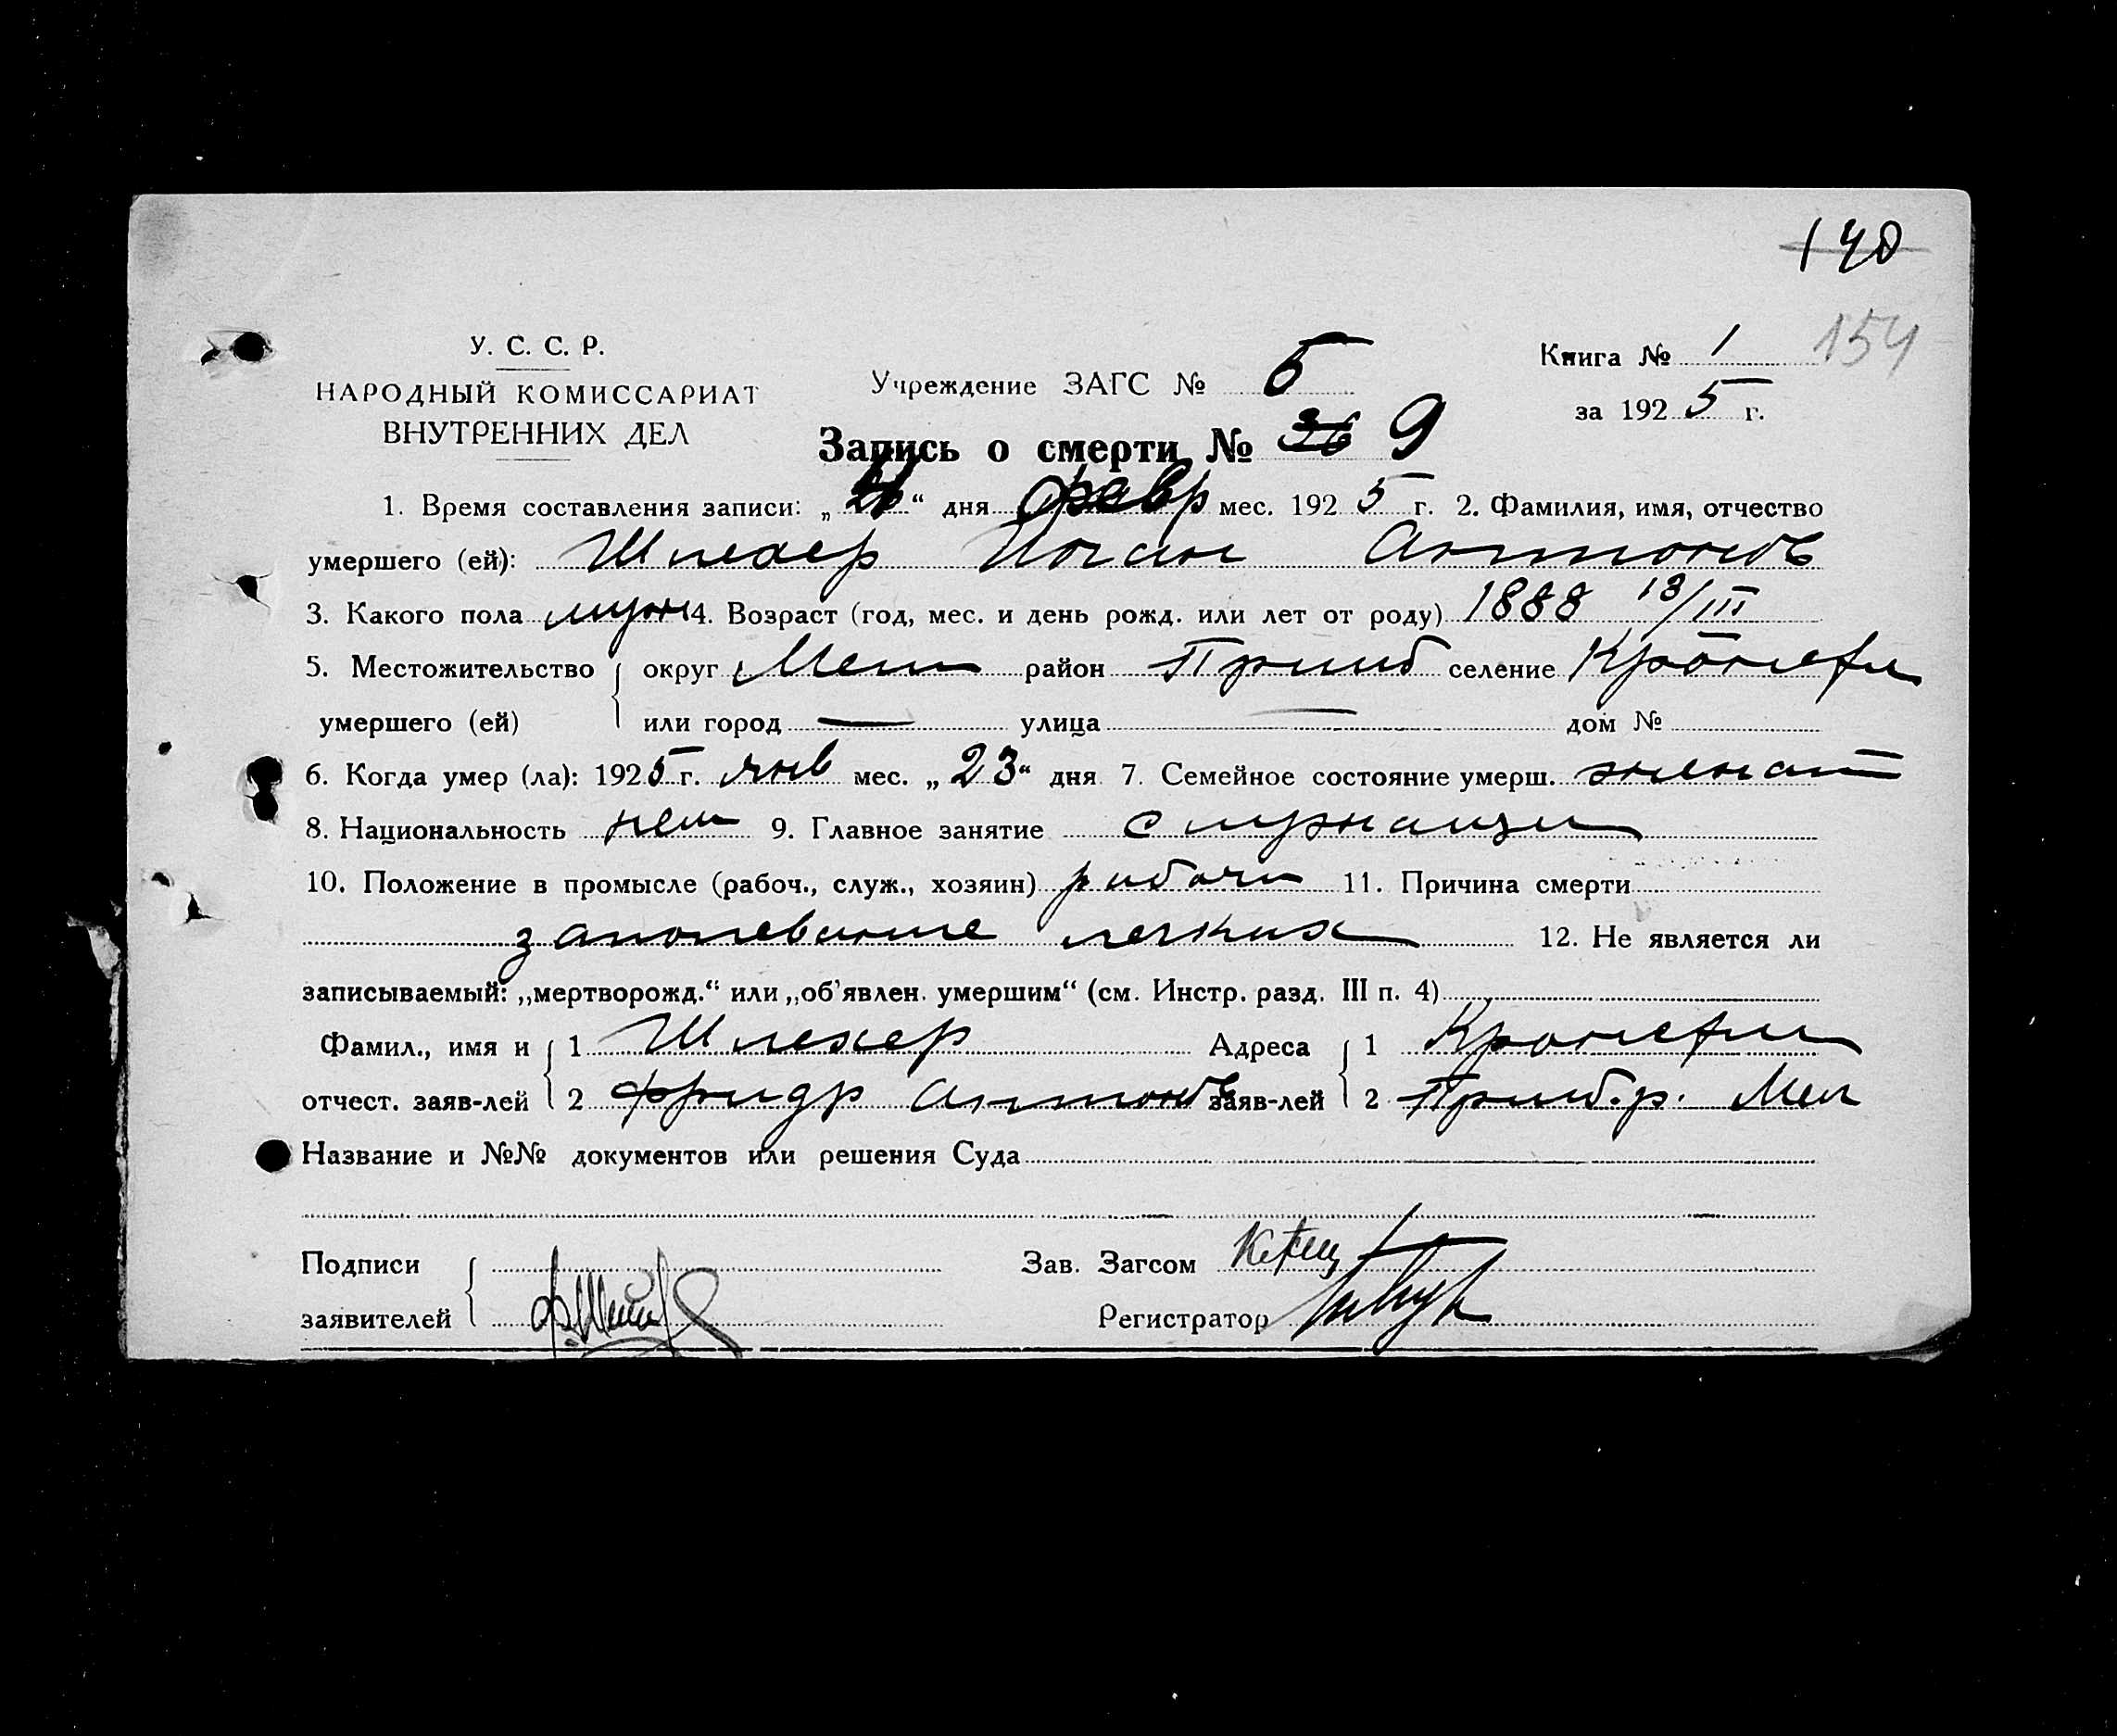 140
154
У. С. С. Р.
НАРОДНЫЙ КОМИССАРИАТ
ВНУТРЕННИХ ДЕЛ
Учреждение ЗАГС № 5
Книга № 1
за 1925 г.
Запись о смерти № 36 9
1. Время составления записи: „4“ дня февр мес. 1925 г. 2. Фамилия, имя, отчество
умершего (ей): Шлехер Иоган Антонов
3. Какого пола муж 4. Возраст (год, мес. и день рожд. или лет от роду) 1888 13/III
5. Местожительство { округ Мел район Пришиб селение Кронсфел
умершего (ей) или город — улица — дом №
6. Когда умер (ла): 1925 г. янв мес. „23“ дня 7. Семейное состояние умерш. женат
8. Национальность нем 9. Главное занятие служащи
10. Положение в промысле (рабоч., служ., хозяин) рабочи 11. Причина смерти
легких 12. Не является ли
записываемый: „мертворожд.“ или „об'явлен. умершим“ (см. Инстр. разд. III п. 4)
Фамил., имя и { 1 Шлехер Адреса { 1 Кронсфел
отчест. заяв-лей 2 Фридр Антонов заяв-лей 2 Приш.р. Мел
Название и №№ документов или решения Суда
Подписи { Зав. Загсом
заявителей Регистратор